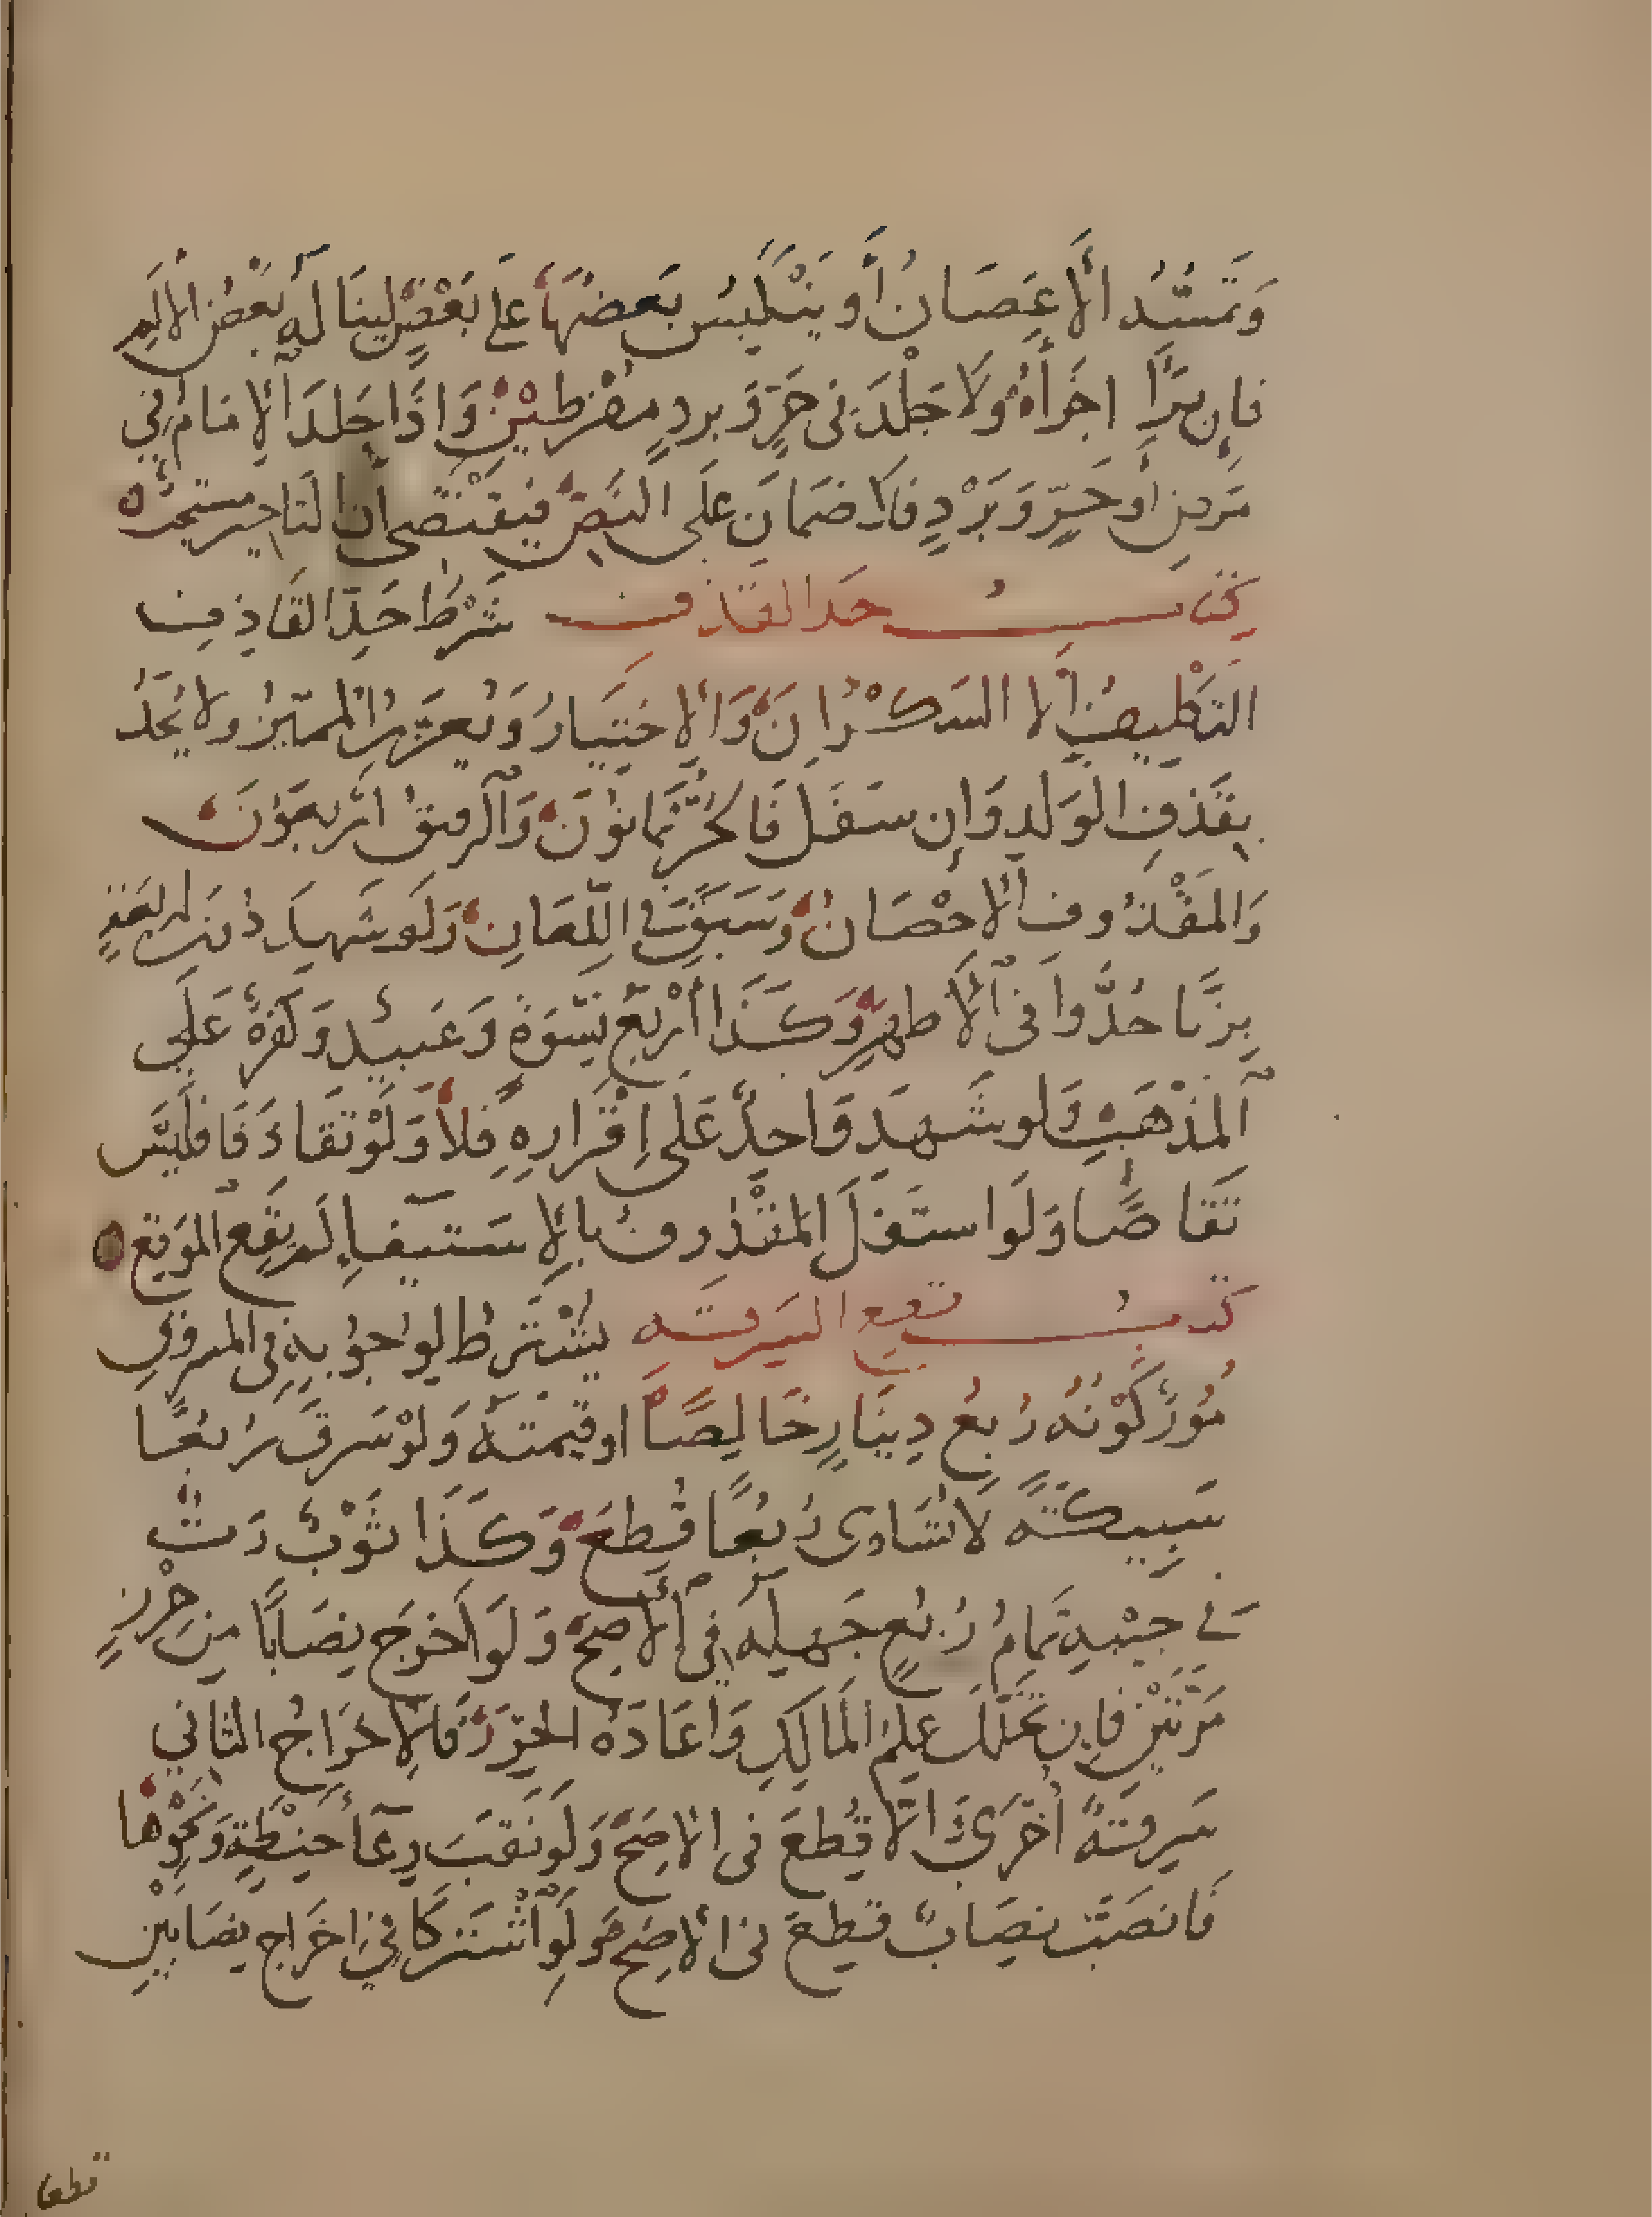 وَتَمَسُّهُ الْأَغْصَانُ أَو يَنْكَبِسُ بَعضُهَا عَلَى بَعْضٍ لِيَنَالَهُ بَعْضُ الأَلَمِ
فَإِن بَرَأَ اجزَأَهُ وَلَا جَلْدَ فى حَرٍّ وَبردٍ مفْرطَيْنِ وَاذَا جَلدَ الإِمَامُ فِي
مَرضٍ أَو حَرٍّ وَبَرْدٍ فَلَا ضمَانَ عَلَى النَّصِّ فيَقْتَضى أن التَاخير مستحبٌّ
كتاب حد القذف شَرْطُ حَدِّ القَاذِفِ
التَكْلِيفُ إلا السَكْرَانَ وَالِاختِيَارُ وَيُعَزَّرُ المميِّزُ ولا يُحَدُّ
بِقَذفِ الوَلَدِ وَإِن سَفَلَ فَالحُرُّ ثمَانُونَ وَالرقيقُ اربَعُونَ
وَالمَقْذُوفِ الْإحْصَانُ وَسَبَقَ فى اللِّعَانِ وَلَو شَهِدَ دُونَ اربعَةٍ
بِزِنًا حُدُّوا فى الْأَظهرِ وَكَذَا أَرْبَعُ نِسْوَةٍ وَعَبيدٍ وَكَفَرَةٍ عَلَى
المَذْهَبِ وَلو شَهِدَ وَاحدٌ عَلَى إِقْرَارِهِ فَلَا وَلَوْ تقَاذَفَا فلَيْسَ
تَقَاصًّا وَلَو استَقَلَّ المَقْذُوفُ بِالِاستيفاءِ لَم يَقَعِ المَوقِعَ
كتاب قطع السرقة يُشْتَرطُ لوُجُوبِهِ فِى المسرُوقِ
أُمُورٌ كَوْنُهُ رُبعُ دِينَارٍ خَالِصًا اوقيمتهُ وَلَوْ سَرقَ رُبعًا
سَبِيكَةً لَا تُسَاوى رُبعًا قُطِعَ وَكَذَا ثَوْبٌ رَثٌّ
فى جَيْبِهِ تَمَامُ رُبعٍ جَهِلَهُ فى الْأَصحِّ وَلَو أَخرَج نِصَابًا مِن حِرْزٍ
مَرَّتَيْنِ فَإِن تَخَلَّلَ عِلمُ المَالِكِ وَأعَادَهُ الحِرْزَ فَالإِخرَاجُ الثانى
سَرِقَةٌ أُخْرَى وَإلَّا قُطِعَ فى الأصَحِّ وَلَو نَقَبَ وِعَآءَ حِنْطَةٍ وَنَحْوِهَا
فَانصَبَّ نِصَابٌ قُطِعَ فى الأَصَحِّ وَلَوِ اشْتَركَا فِى إخرَاجِ نِصَابَيْنِ
قطعا